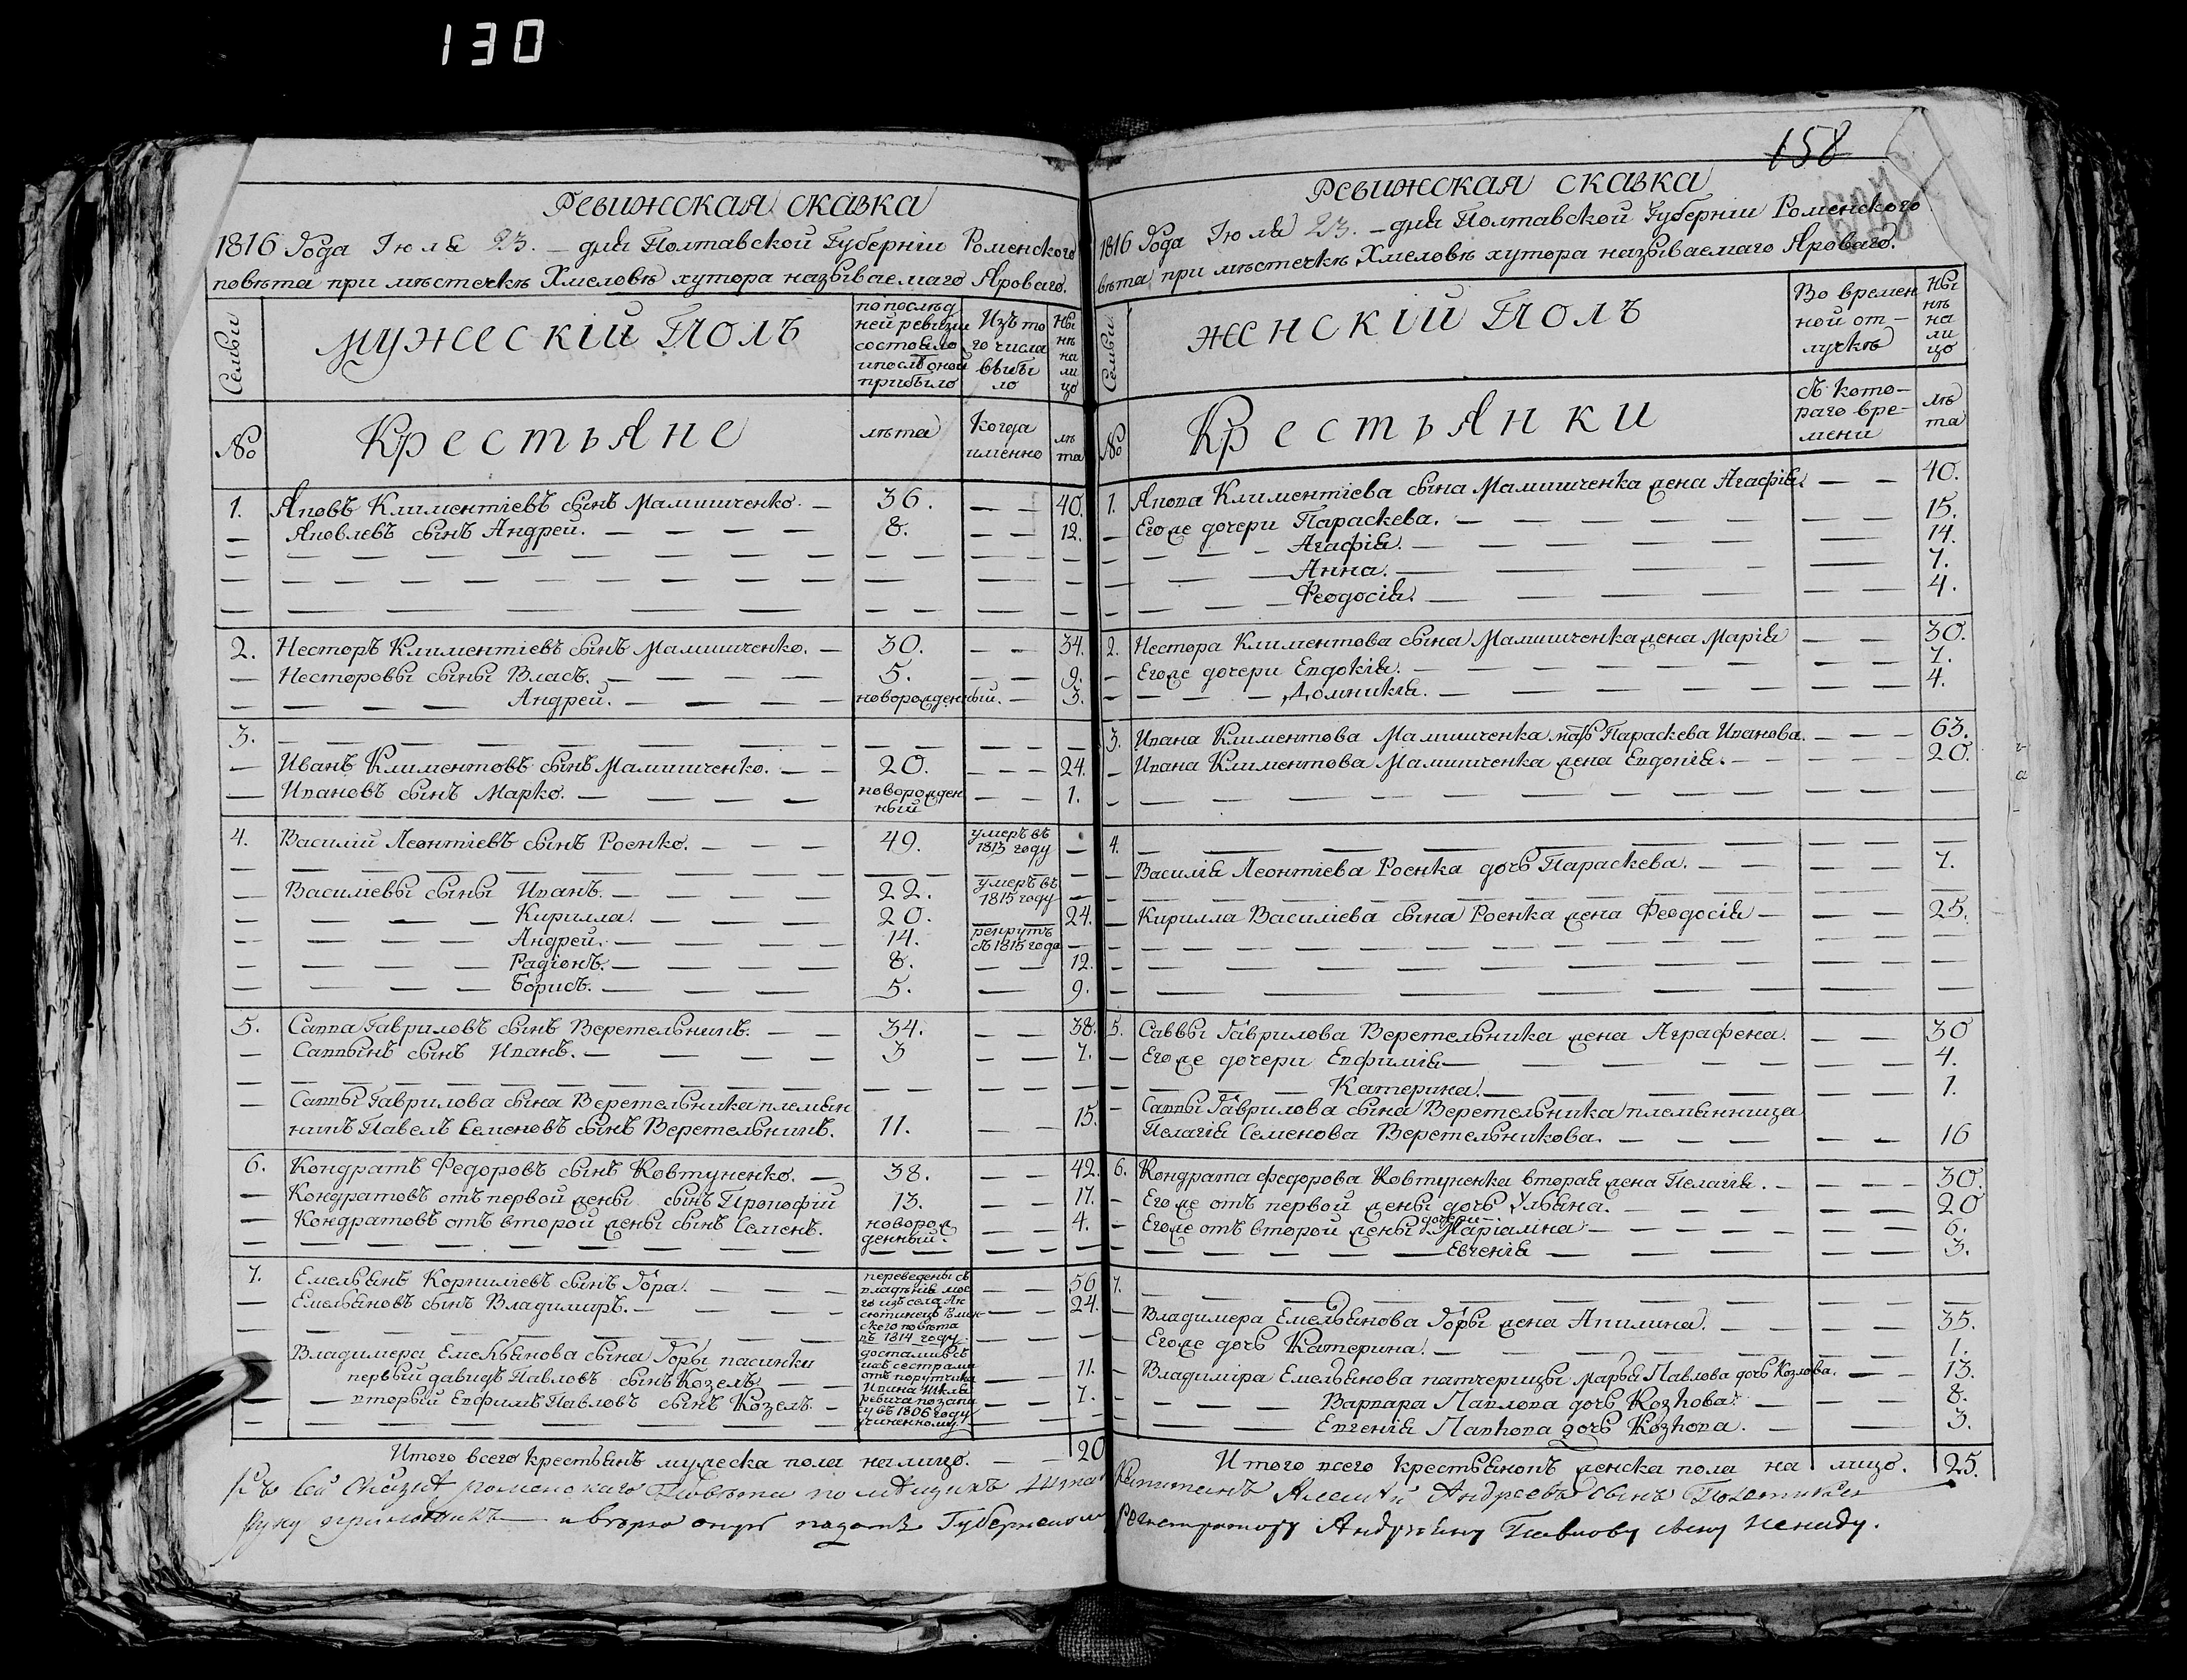 130
Ревижская сказка
1816 Года Июля 23. – дня Полтавской Губерніи Роменского
повѣта при мѣстечкѣ Хмеловѣ хутора называемаго Яроваго.
Семьи
мужескій Полъ
по послѣд
ней ревизіи
состояло
и послѣ оной
прибыло
Изъ то
го числа
выбы
ло
Ны
нѣ
на
ли
цо
№
Крестьяне
лѣта
Когда
именно
лѣ
та
1. Яковъ Климентіевъ сынъ Мамишченко. – 36. – – 40.
– Яковлевъ сынъ Андрей. – – – – 8. – – 12.
2. Несторъ Климентіевъ сынъ Мамишченко. – 30. – – 34.
– Несторовы сыны Власъ. – – – – 5. – – 9.
– – – – Андрей. – – – – новорожденный. – 3.
3. – – – – – – – –
– Иванъ Климентовъ сынъ Мамишченко. – – 20. – – – 24.
– Ивановъ сынъ Марко. – – – – новорожден
ный – – 1.
4. Василій Леонтіевъ сынъ Роенко. – – – 49. умеръ въ
1813 году –
– Василіевы сыны Иванъ. – – – – 22. умеръ въ
1815 году –
– – – – Кирилла. – – – – 20. – – 24.
– – – – Андрей. – – – – 14. рекрутъ
съ 1815 года –
– – – – Радіонъ. – – – – 8. – – 12.
– – – – Борисъ. – – – 5. – 9.
5. Савва Гавриловъ сынъ Веретельникъ. – – 34. – – 38.
– Саввынъ сынъ Иванъ. – – – – 3 – – 7.
– Саввы Гаврилова сына Веретельника племян
никъ Павелъ Семеновъ сынъ Веретельникъ. 11. – – 15.
6. Кондратъ Федоровъ сынъ Ковтуненко. – 38. – – 42.
– Кондратовъ отъ первой жены сынъ Прокофій 13. – – 17.
– Кондратовъ отъ второй жены сынъ Семенъ. новорож
денный. – – 4.
7. Емельянъ Корниліевъ сынъ Гора. – – – 56
– Емельяновъ сынъ Владимиръ. – – – – 24.
переведены съ
владѣнія мое
го изъ села
скаго повѣта
въ 1814 году.
Владимера Емельянова сына Горы пасинки
первый давидъ Павловъ сынъ Козелъ – – – 11.
– второый Евфимъ Павловъ сынъ Козелъ. – – – 7.
достались
сестрами
отъ порутчика
Ивана
въ 1806 году
учиненному.
Итого всего крестьянъ мужеска пола налицо. – – 20
Къ сей сказкѣ роменскаго Повѣта помѣщикъ
руку приложилъ и вторю оную подать Губернскому
158
Ревижская сказка
1816 Года Июля 23. – дня Полтавской Губерніи Роменского
вѣта при мѣстечкѣ Хмеловѣ хутора называемаго Яроваго.
Семьи
женскій Полъ
Во времен
ной от –
лучкѣ
Ны
нѣ
на
ли
цо
№
Крестьянки
съ кото –
раго вре –
мени
лѣ
та
1. Якова Климентіева сына Мамишченка жена Агафія. – – 40.
– Егоже дочери Параскева. – – – 15.
– – – – Агафія. – – – 14.
– – – – Анна. – – – 7.
– – – – Феодосія. – – – 4.
2. Нестора Климентова сына Мамишченка жена Марія – – 30.
– Егоже дочери Евдокія. – – – 7.
– – – – Домникія. – – – 4.
3. Ивана Климентова Мамишченка мать Параскева Иванова. – – – 63.
– Ивана Климентова Мамишченка жена Евдокія. – – – 20.
4. – – – – – – –
– Василія Леонтіева Роенка дочь Параскева. – – – 7.
– Кирилла Василіева сына Роенка жена Феодосія – – – 25.
5. Саввы Гаврилова Веретельника жена Аграфена. – – 30
– Егоже дочери Евфимія – – – 4.
– – – – Катерина. – – – 1.
– Саввы Гаврилова сына Веретельника племянница
Пелагія Семенова Веретельникова. – – – 16
6. Кондрата федорова Ковтуненка вторая жена Пелагія. – – – 30.
– Егоже отъ первой жены дочь Ульяна. – – – 20
– Егоже отъ второй жены дочери – Маріамна – – – 6.
– – – – Евгенія – – – 3.
7. – – – – – – –
– Владимера Емельянова Горы жена Акилина. – – – 35.
– Егоже дочь Катерина. – – – 1.
– Владиміра Емельянова патчерицы марья Павлова дочь Козлова. – – 13.
– – – – Варвара Павлова дочь Козлова. – – – 8.
– – – – Евгенія Павлова дочь Козлова. – – – 3.
Итого всего крестьянокъ женска пола на лицо. 25.
Алексѣй Андреевъ сынъ
Регистратору Андреяну Павлову сыну Ненаду.